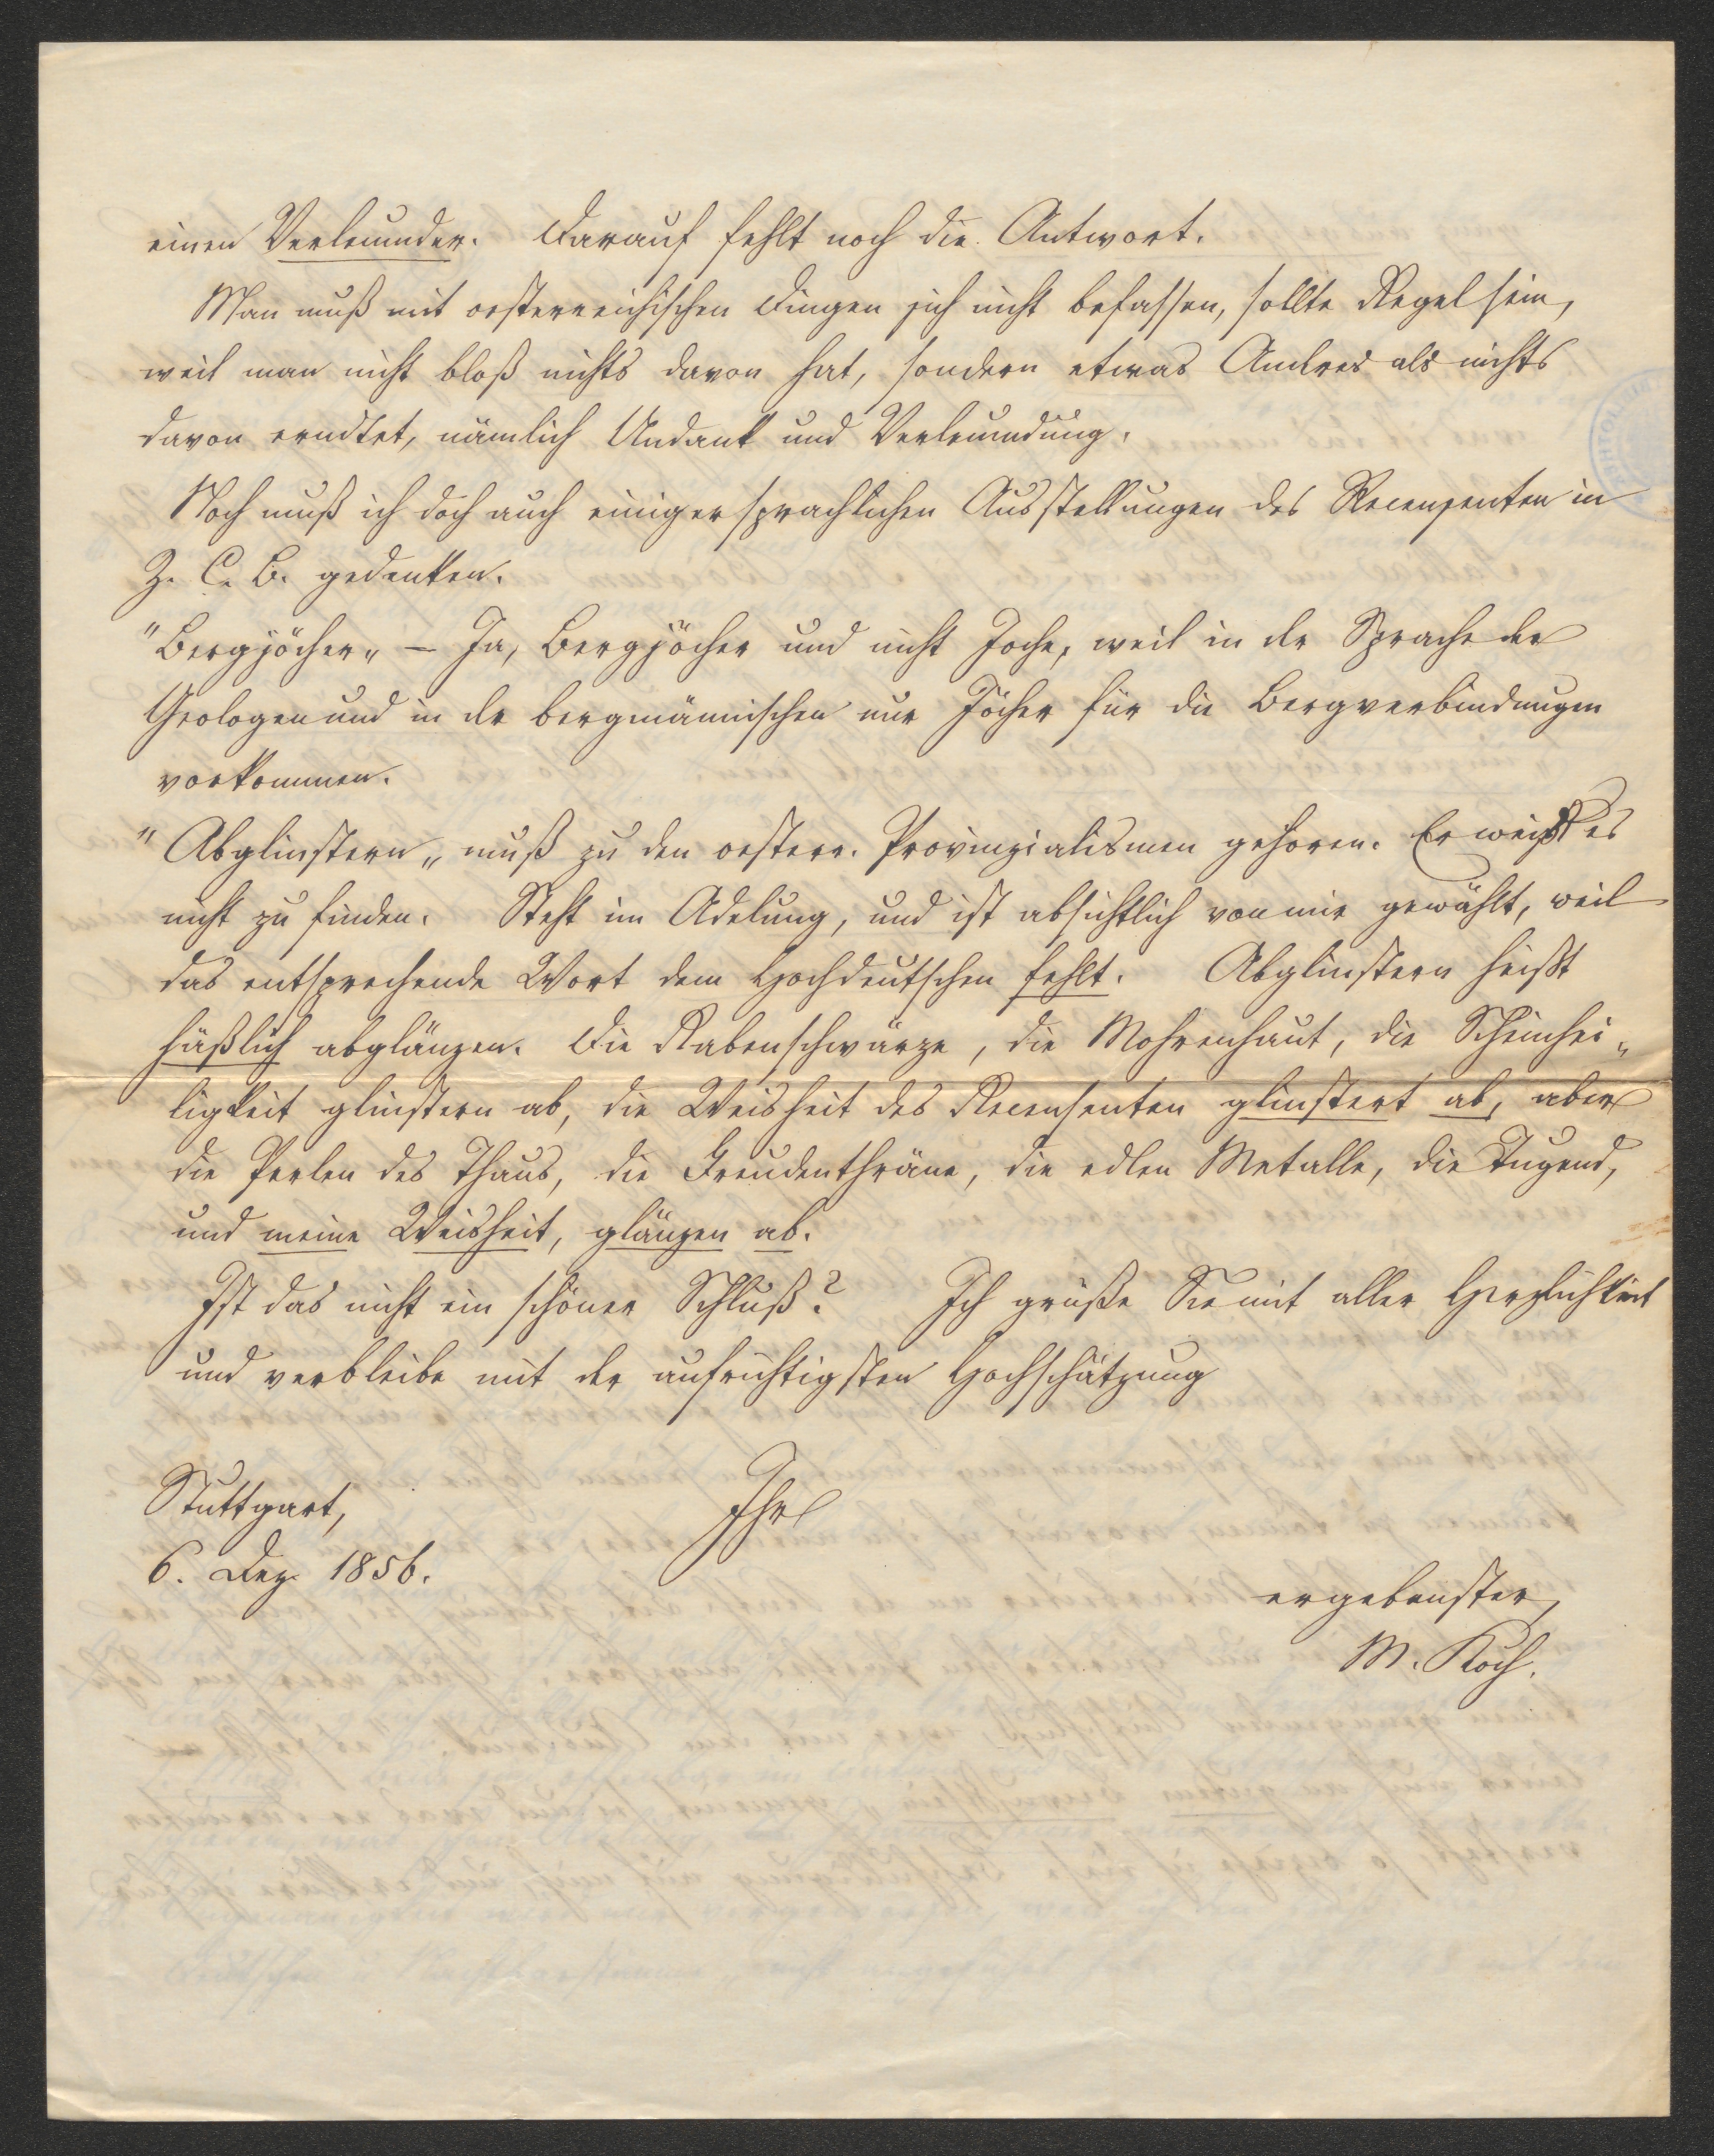 einen Verleumder. Darauf fehlt noch die Antwort.
Man muß mit oesterreichischen Dingen sich nicht befassen, sollte Regel sein,
weil man nicht bloß nichts davon hat, sondern etwas Andres als nichts
davon erndtet, nämlich Undank und Verleumdung.
Noch muß ich doch auch einiger sprachlichen Ausstellungen des Recensenten in
Z. C. B. gedenken.
"Bergjöcher„ – Ja, Bergjöcher und nicht Joche, weil in der Sprache der
Geologen und in der bergmännischen nur Jöcher für die Bergverbindungen
vorkommen.
"Abglinstern„ muß zu den oesterr. Provinzialismen gehören. Er weiß es
nicht zu finden. Steht im Adelung, und ist absichtlich von mir gewählt, weil
das entsprechende Wort dem Hochdeutschen fehlt. Abglinstern heißt
häßlich abglänzen. Die Rabenschwärze, die Mohrenhaut, die Scheinhei„
ligkeit glinstern ab, die Weisheit des Recensenten glinstert ab, aber
die Perlen des Thaus, die Freudenthräne, die edlen Metalle, die Tugend,
und meine Weisheit, glänzen ab.
Ist das nicht ein schöner Schluß? Ich grüße Sie mit aller Herzlichkeit
und verbleibe mit der aufrichtigsten Hochschätzung
Stuttgart,
Ihr
6. Dez. 1856.
ergebenster,
M. Koch.